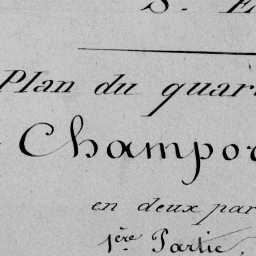 S. E
Plan du quar
Champo
en deux par
1ère Partie.